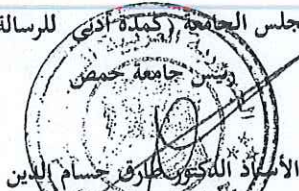 جلس الجامعة (حمدة أدبي للرسالة
رئيس جامعة حمص
الأستاذ الدكتور طارق حسام الدين